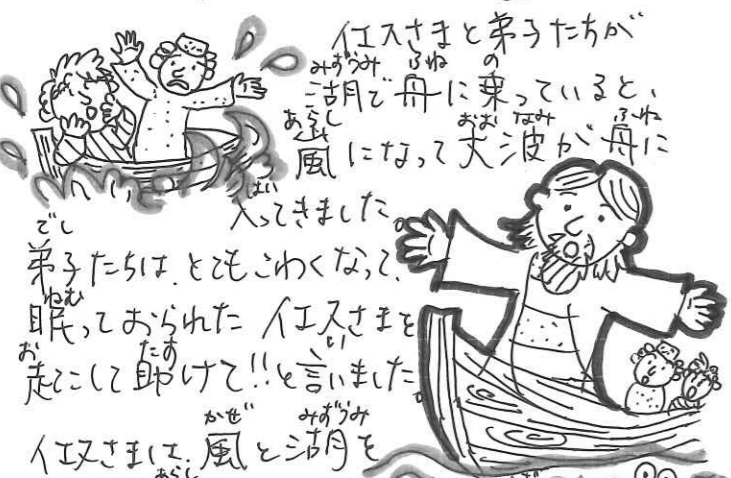 イエスさまと弟子たちが
湖で舟に乗っていると、
嵐になって大波が舟に
入ってきました。
弟子たちは、とてもこわくなって、
眠っておられた イエスさまを
起こして助けて!!と言いました。
イエスさまは、風と湖を